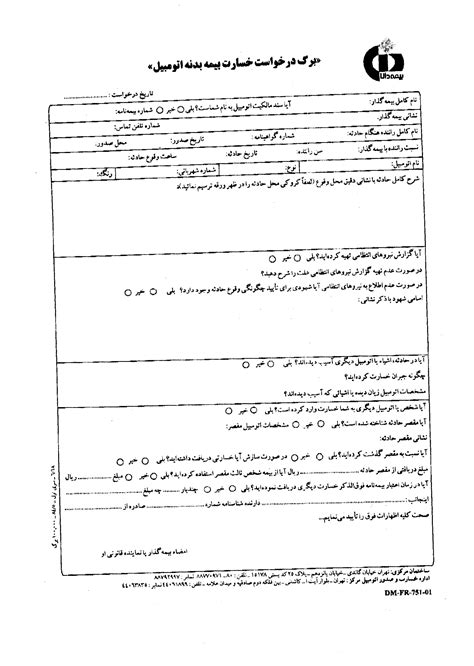 بیمه دانا
«برگ درخواست خسارت بیمه بدنه اتومبیل»
تاریخ درخواست: ....................
نام کامل بیمه گذار: آیا سند مالکیت اتومبیل به نام شماست؟ بلی خیر شماره بیمه‌نامه:
نشانی بیمه گذار: شماره تلفن تماس:
نام کامل راننده هنگام حادثه: شماره گواهینامه: تاریخ صدور: محل صدور:
نسبت راننده با بیمه گذار: سن راننده: تاریخ حادثه: ساعت وقوع حادثه:
نام اتومبیل: نوع: شماره شهربانی: رنگ:
شرح کامل حادثه با نشانی دقیق محل وقوع (لطفاً کروکی محل حادثه را در ظهر ورقه ترسیم نمائید)
آیا گزارش نیروهای انتظامی تهیه کرده‌اید؟ بلی خیر
در صورت عدم تهیه گزارش نیروهای انتظامی علت را شرح دهید؟
در صورت عدم اطلاع به نیروهای انتظامی آیا شهودی برای تأیید چگونگی وقوع حادثه وجود دارد؟ بلی خیر
اسامی شهود با ذکر نشانی:
آیا در حادثه، اشیاء یا اتومبیل دیگری آسیب دیده‌اند؟ بلی خیر
چگونه جبران خسارت کرده‌اید؟
مشخصات اتومبیل زیان دیده یا اشیائی که آسیب دیده‌اند؟
آیا شخص یا اتومبیل دیگری به شما خسارت وارد کرده است؟ بلی خیر
آیا مقصر حادثه شناخته شده است؟ بلی خیر مشخصات اتومبیل مقصر:
نشانی مقصر حادثه:
آیا نسبت به مقصر گذشت کرده‌اید؟ بلی خیر در صورت سازش آیا خسارتی دریافت داشته‌اید؟ بلی خیر
مبلغ دریافتی از مقصر حادثه .................... ریال آیا از بیمه شخص ثالث مقصر استفاده کرده‌اید؟ بلی خیر مبلغ .................... ریال
آیا در زمان اعتبار بیمه‌نامه فوق‌الذکر خسارت دیگری دریافت نموده‌اید؟ بلی خیر چندبار ........ چه مبلغ ....................
اینجانب: .................... دارنده شناسنامه شماره .................... صادره از ....................
صحت کلیه اظهارات فوق را تأیید می‌نمایم.
امضاء بیمه گذار یا نماینده قانونی او
ساختمان مرکزی: تهران خیابان گاندی - خیابان پانزدهم - پلاک ۲۵ کد پستی ۱۵۱۷۸ - تلفن: ۸۰-۸۸۷۷۰۹۷۱ نمابر: ۸۸۷۹۲۹۹۷
DM-FR-751-01